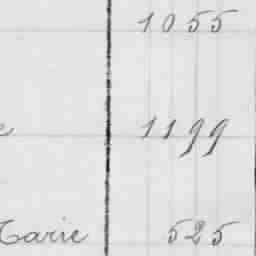 1055
1199
Marie 525